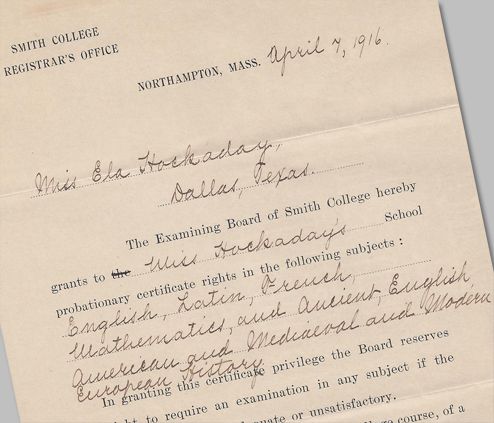 SMITH COLLEGE
REGISTRAR'S OFFICE
NORTHAMPTON, MASS. April 7, 1916.
Miss Ela Hockaday,
Dallas, Texas.
The Examining Board of Smith College hereby
grants to the Miss Hockaday's School
probationary certificate rights in the following subjects:
English, Latin, French,
Mathematics, and Ancient, English,
American and Mediaeval and Modern
European History.
In granting this certificate privilege the Board reserves
to require an examination in any subject if the
or unsatisfactory.
course, of a